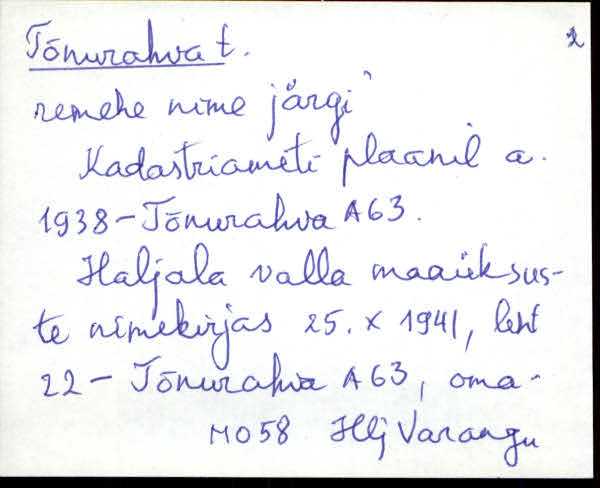 Tõnurahva t. 2
remehe nime järgi"
Kadastriameti plaanil a.
1938 - Tõnurahva A63.
Haljala valla maaüksus-
te nimekirjas 25. X 1941, leht
22 - Tõnurahva A63, oma-
MO58 Hlj Varangu